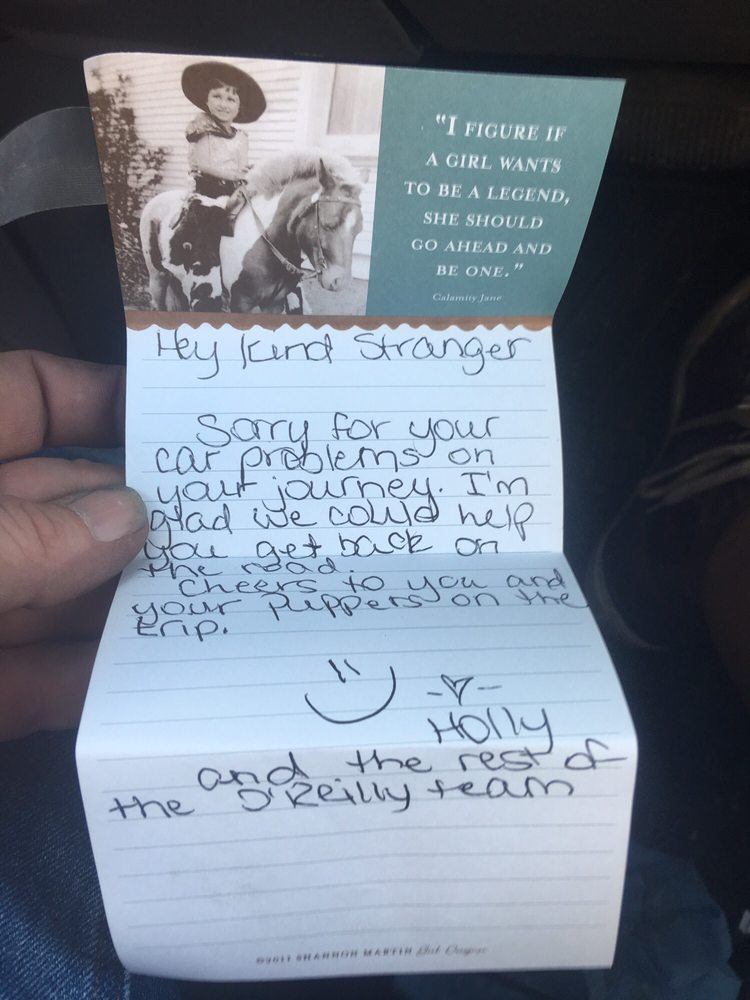 "I FIGURE IF
A GIRL WANTS
TO BE A LEGEND,
SHE SHOULD
GO AHEAD AND
BE ONE."
Calamity Jane
Hey Kind Stranger
Sorry for your
car problems on
your journey. I'm
glad we could help
you get back on
the road.
Cheers to you and
your Puppers on the
trip.
Holly
and the rest of
the O'Reilly team
©2011 SHANNON MARTIN Girl Designer